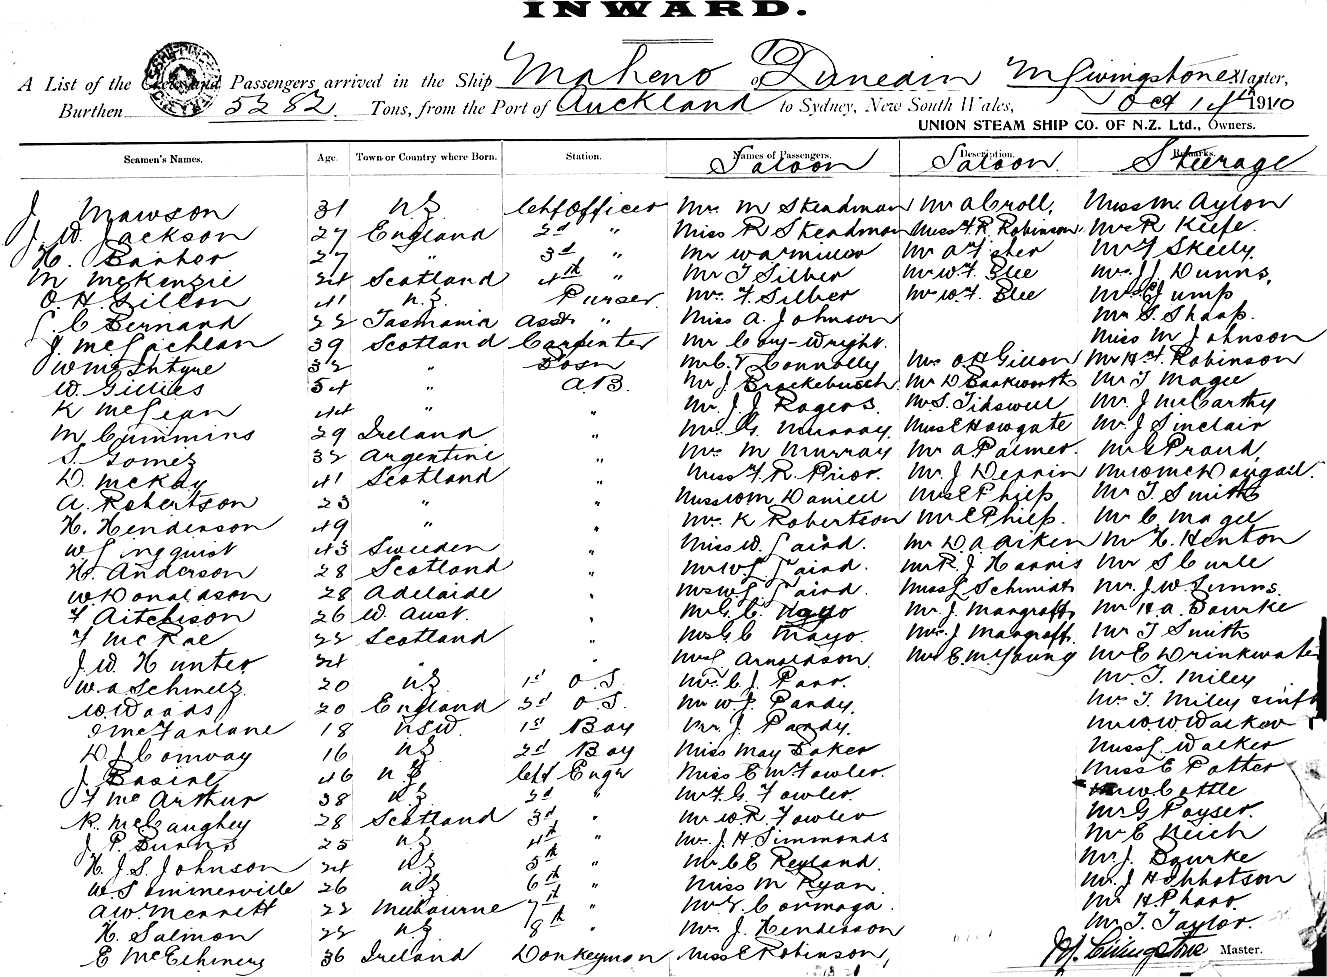 INWARD.
A List of the Crew and Passengers arrived in the Ship Maheno of Dunedin M Livingstone Master,
Burthen 5282 Tons, from the Port of Auckland to Sydney, New South Wales, Oct 14th 1910
UNION STEAM SHIP CO. OF N.Z. Ltd., Owners.
Seamen's Names. Age. Town or Country where Born. Station. Names of Passengers. Description. Remarks.
Saloon Saloon Steerage
J Mawson 31 NZ Chf Officer Mrs M Steadman Mr A Croll, Miss M. Aylon
J. W. Jackson 27 England 2nd " Miss R Steadman Miss F. R. Robinson Mrs R Kiefe.
H. Barber 27 " 3rd " Mr Mr A Fisher Mr F Skelly
M McKenzie 24 Scotland 4th " Mr T Silber Mr W. F. Blee Mrs J. J. Dunns,
O. H. Gillon 41 N.Z. Purser. Mrs F. Silber Mr W. F. Blee Mr Jump,
L. C Bernard 22 Tasmania Asst " Miss A. Johnson Mr S Sharp.
J. McLachlan 39 Scotland Carpenter Mr C Guy-Wright. Miss M Johnson
W McIntyre 32 " Bosn Mr C. V. Connolly Mrs O. H Gillon Mr H. F. Robinson
W. Gillies 34 " A.B. Mr J Brockebusch Mr D Backworth Mr T Magee
K McLean 44 " " Mr J. J Rogers Mr S. Tidswell Mr J McCarthy
M Cummins 29 Ireland " Mr G Murray. Miss E Howgate Mr J Sinclair
S. Gomez 32 Argentine " Mrs M Murray Mr A Palmer. Mr G Proud,
D. McKay 41 Scotland " Miss F. R. Prior. Mr J Derrin Mr W McDougall.
A. Robertson 23 " " Miss W M Daniell Miss E Phipp Mr T. Smith
H. Henderson 49 " " Mrs K Robertson Mr E Phipp. Mr C. Magee
W Linquist 43 Sweden " Miss W. Laird. Mr D. A Aitken Mr H. Henton
H. Anderson 28 Scotland " Mr W L Laird. Mr R. J Harris Mr S Curle
W Donaldson 28 Adelaide " Mrs W. L. Laird. Miss L Schmidt Mr J. W Simms.
F Aitchison 26 W. Aust. " Mr G. C. Mayo Mr J Mangroff, Mr H. A. Bourke
F McRae 22 Scotland " Mrs G C Mayo. Mrs J Mangroff. Mr T Smith
J. W. Hunter 24 " " Mrs S. Arnaldson. Mr E. M. Young Mr E Drinkwater
W. A Schmelz 20 NZ 1st O.S. Mr C. J. Parr. Mr T. Miley
W. Woods 20 England 2nd O.S. Mr W. J. Pardy. Mr T. Miley
J McFarlane 18 NSW. 1st Boy Mr J. Pardy. Mr W. W Walker
D J Conway 16 NZ 2nd Boy Miss May Baker Miss L. Walker
J. Basire 46 NZ Chf Engr Miss E M Fowler. Miss E Potter
F McArthur 38 NZ 2nd " Mr F. G. Fowler. Mr W Cottle
R. McCaughey 28 Scotland 3rd " Mr W R. Fowler Mr G Payser.
J. P. Burns 25 NZ 4th " Mr J. H Simmonds Mr E Neich
H. J. S. Johnson 24 NZ 5th " Mr C E Reyland. Mr J. Bourke
W Sommerville 26 NZ 6th " Miss M Ryan. Mr J H Ibbotson
A W. Merrett 22 Melbourne 7th " Mr V. Cormaga. Mr H. Pharr.
H. Salmon 22 NZ 8th " Mrs J. Henderson Mr T. Taylor.
E McElhinery 36 Ireland Donkeyman Miss E Robinson, M. Livingstone Master.